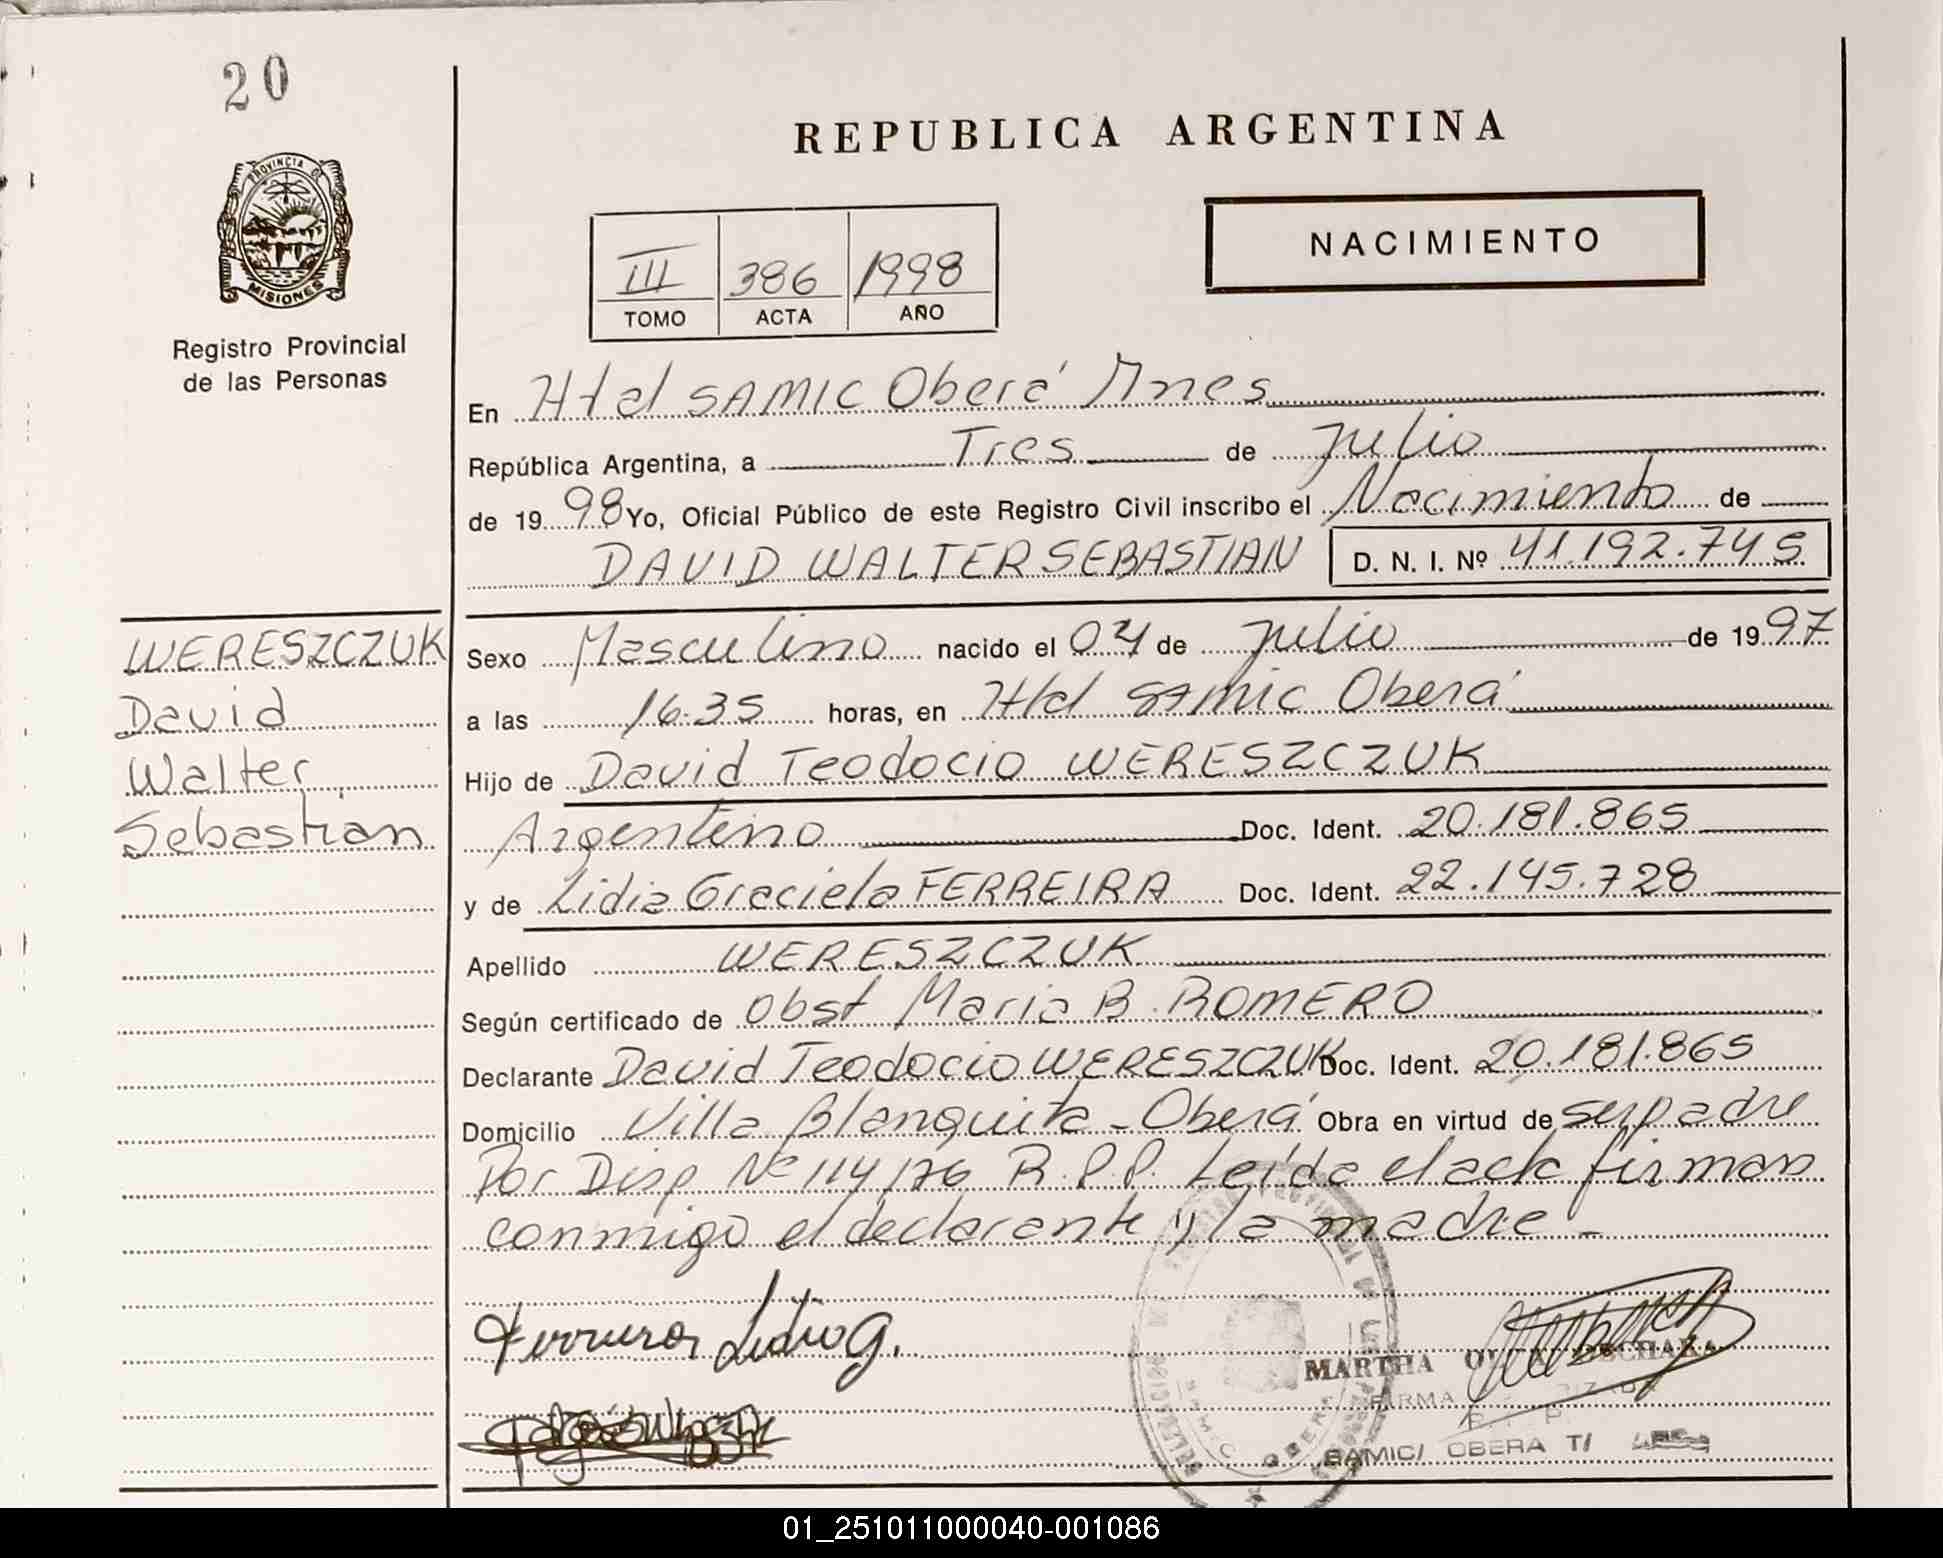 20
REPUBLICA ARGENTINA
PROVINCIA DE
MISIONES
Registro Provincial
de las Personas
NACIMIENTO
III 386 1998
TOMO ACTA AÑO
En Htal SAMIC Oberá Mnes
República Argentina, a Tres de Julio
de 1998 Yo, Oficial Público de este Registro Civil inscribo el Nacimiento de
DAVID WALTER SEBASTIAN D. N. I. Nº 41.192.745
WERESZCZUK
David
Walter
Sebastian
Sexo Masculino nacido el 04 de Julio de 1997
a las 16.35 horas, en Htal SAMIC Oberá
Hijo de David Teodocio WERESZCZUK
Argentino Doc. Ident. 20.181.865
y de Lidia Graciela FERREIRA Doc. Ident. 22.145.728
Apellido WERESZCZUK
Según certificado de Obst Maria B. ROMERO
Declarante David Teodocio WERESZCZUK Doc. Ident. 20.181.865
Domicilio Villa Blanquita - Oberá Obra en virtud de ser padre
Por Disp Nº 114/76 R.P.P. Leída el acta firman
conmigo el declarante y la madre -
Ferreira Lidia G.
MARTHA
FIRMA
SAMIC/ OBERA
01_251011000040-001086